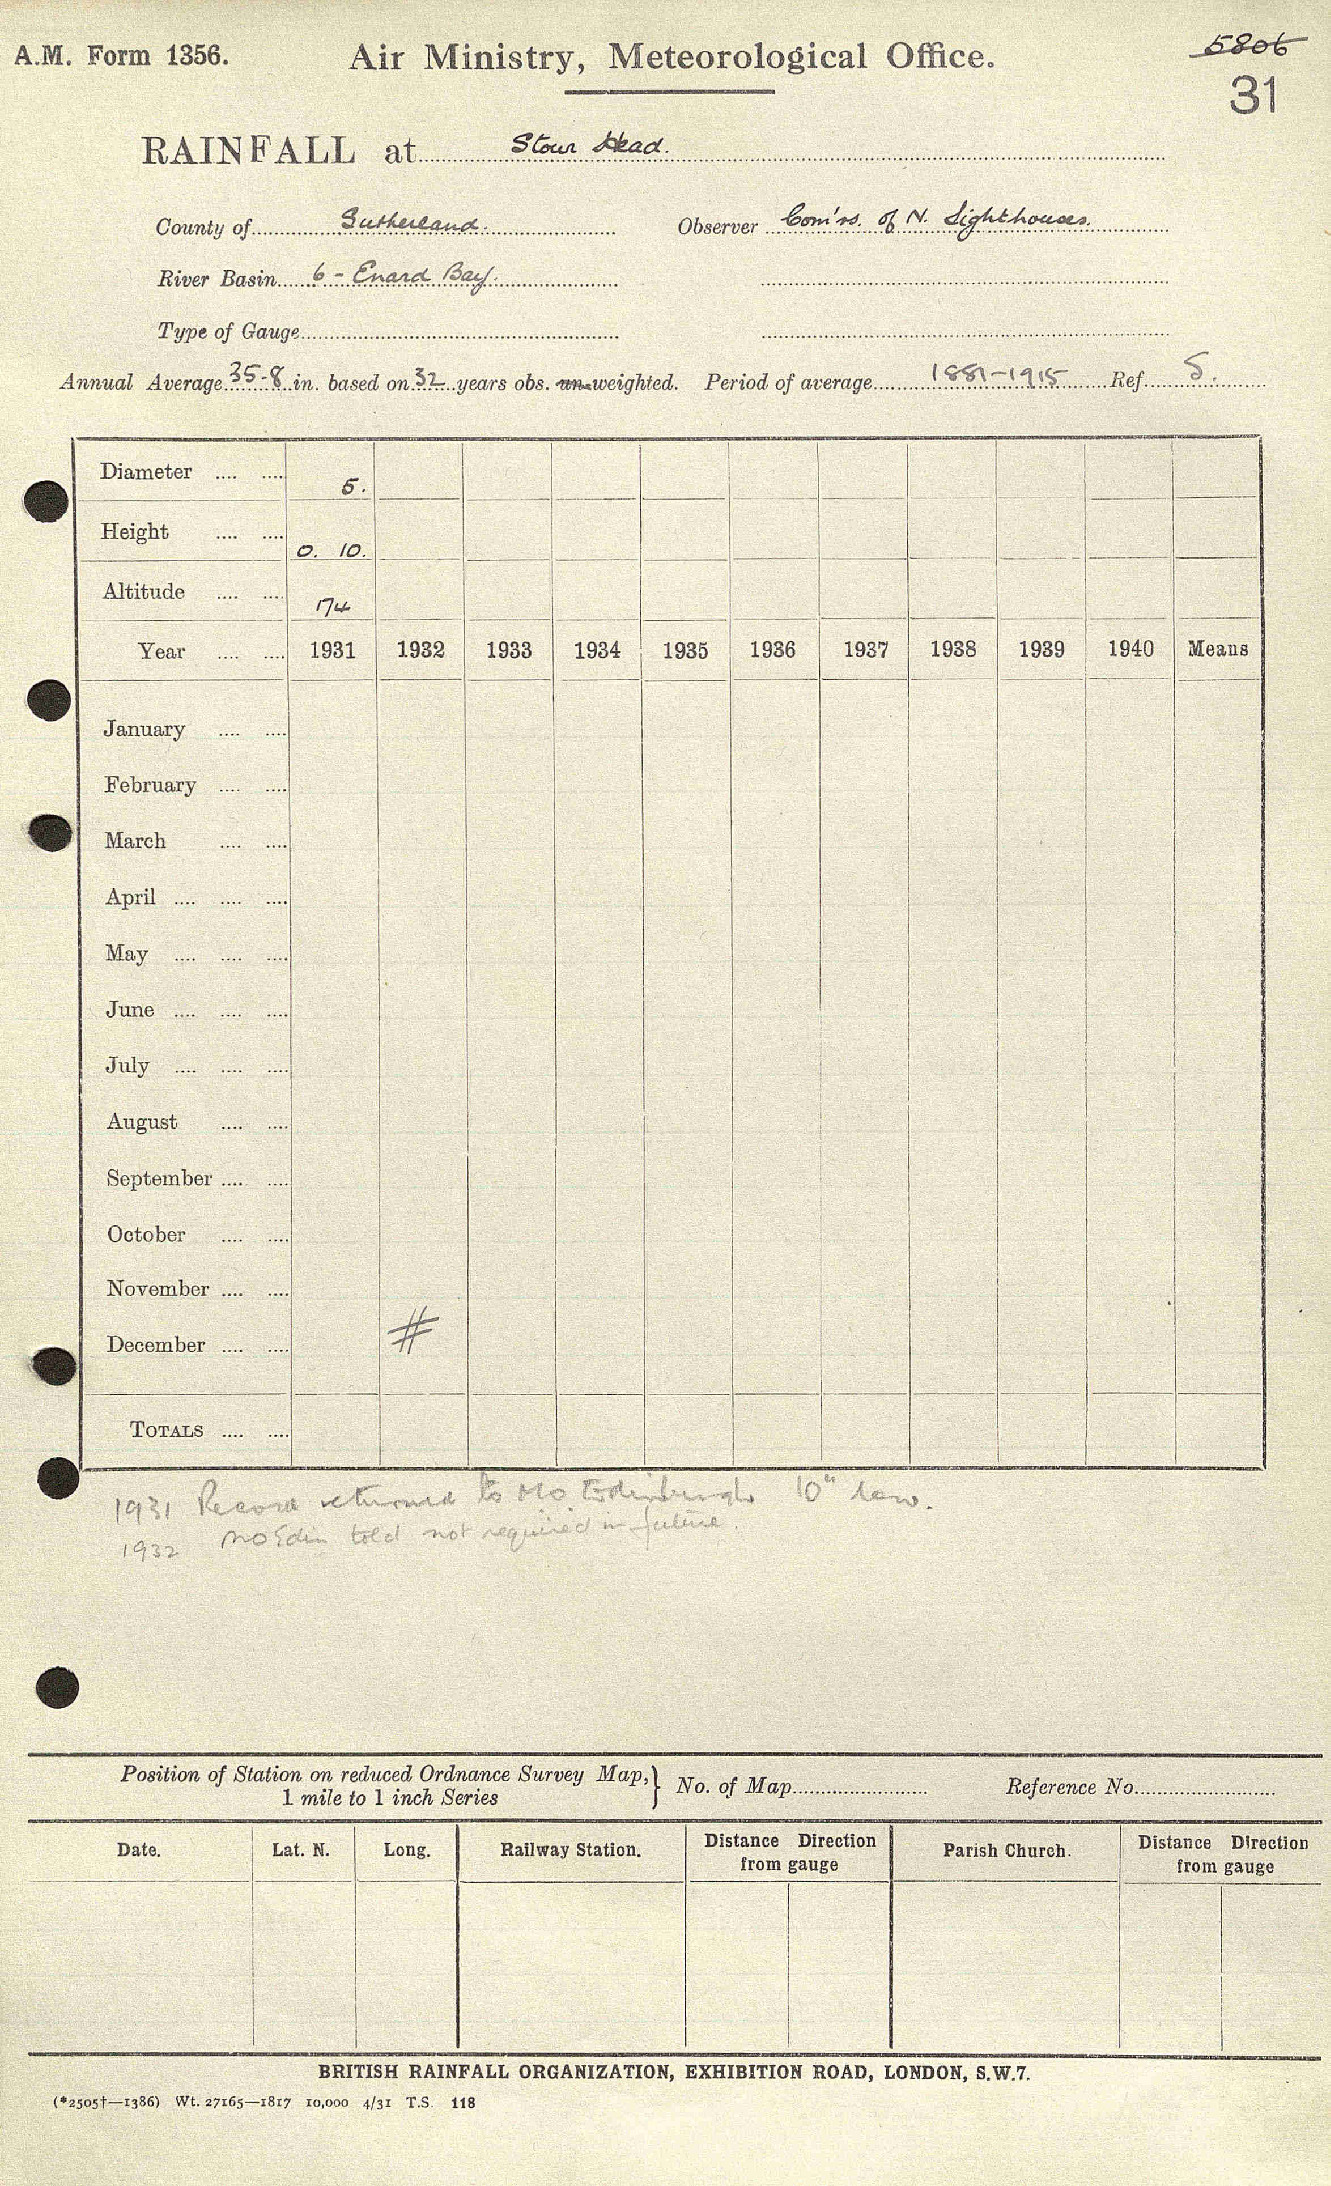 A.M. Form 1356. Air Ministry, Meteorological Office. 5806
31
RAINFALL at Stour Head.
County of Sutherland. Observer Com'rs. of N. Lighthouses.
River Basin 6 - Enard Bay.
Type of Gauge
Annual Average 35.8 in. based on 32 years obs. un-weighted. Period of average 1881-1915 Ref. S.
Diameter .... .... 5.
Height .... .... 0. 10.
Altitude .... .... 174
Year .... .... 1931 1932 1933 1934 1935 1936 1937 1938 1939 1940 Means
January .... ....
February .... ....
March .... ....
April .... .... ....
May .... .... ....
June .... .... ....
July .... .... ....
August .... ....
September .... ....
October .... ....
November .... ....
December .... .... #
TOTALS .... ....
1931 Record returned to MO Edinburgh 10" low.
1932 MO Edin told not required in future.
Position of Station on reduced Ordnance Survey Map, } No. of Map Reference No.
1 mile to 1 inch Series
Date. Lat. N. Long. Railway Station. Distance Direction from gauge Parish Church. Distance Direction from gauge
BRITISH RAINFALL ORGANIZATION, EXHIBITION ROAD, LONDON, S.W.7.
(*2505†—1386) Wt. 27165—1817 10,000 4/31 T.S. 118